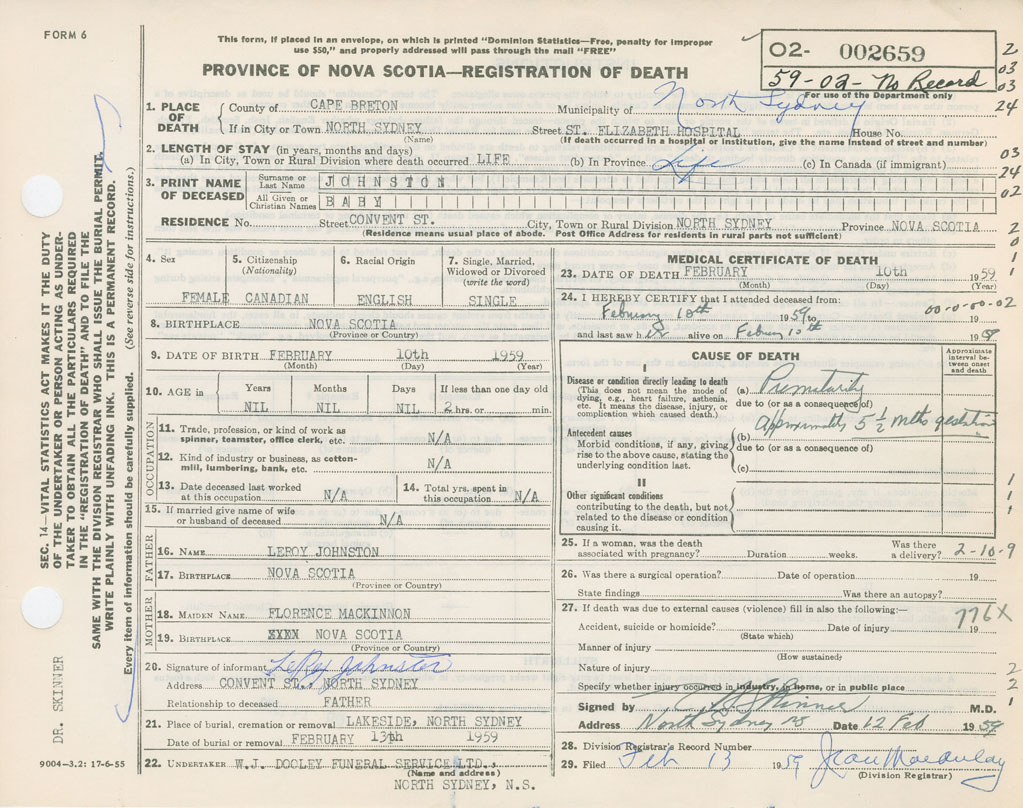 FORM 6
This form, if placed in an envelope, on which is printed "Dominion Statistics—Free, penalty for improper
use $50," and properly addressed will pass through the mail "FREE"
PROVINCE OF NOVA SCOTIA—REGISTRATION OF DEATH
02- 002659
59-02-No Record
For use of the Department only
1. PLACE OF DEATH
County of CAPE BRETON Municipality of North Sydney
If in City or Town NORTH SYDNEY Street ST. ELIZABETH HOSPITAL House No.
(Name) (If death occurred in a hospital or institution, give the name instead of street and number)
2. LENGTH OF STAY (in years, months and days)
(a) In City, Town or Rural Division where death occurred LIFE (b) In Province Life (c) In Canada (if immigrant)
3. PRINT NAME OF DECEASED
Surname or Last Name JOHNSTON
All Given or Christian Names BABY
RESIDENCE No. Street CONVENT ST. City, Town or Rural Division NORTH SYDNEY Province NOVA SCOTIA
(Residence means usual place of abode. Post Office Address for residents in rural parts not sufficient)
4. Sex FEMALE
5. Citizenship (Nationality) CANADIAN
6. Racial Origin ENGLISH
7. Single, Married, Widowed or Divorced (write the word) SINGLE
8. BIRTHPLACE NOVA SCOTIA
(Province or Country)
9. DATE OF BIRTH FEBRUARY 10th 1959
(Month) (Day) (Year)
10. AGE in Years Months Days If less than one day old
NIL NIL NIL 2 hrs. or min.
OCCUPATION
11. Trade, profession, or kind of work as
spinner, teamster, office clerk, etc. N/A
12. Kind of industry or business, as cotton-
mill, lumbering, bank, etc. N/A
13. Date deceased last worked
at this occupation N/A
14. Total yrs. spent in
this occupation N/A
15. If married give name of wife
or husband of deceased N/A
FATHER
16. NAME LEROY JOHNSTON
17. BIRTHPLACE NOVA SCOTIA
(Province or Country)
MOTHER
18. MAIDEN NAME FLORENCE MACKINNON
19. BIRTHPLACE NOVA SCOTIA
(Province or Country)
20. Signature of informant LeRoy Johnston
Address CONVENT ST., NORTH SYDNEY
Relationship to deceased FATHER
21. Place of burial, cremation or removal LAKESIDE, NORTH SYDNEY
Date of burial or removal FEBRUARY 13th 1959
22. UNDERTAKER W.J. DOOLEY FUNERAL SERVICE LTD.,
(Name and address)
NORTH SYDNEY, N.S.
MEDICAL CERTIFICATE OF DEATH
23. DATE OF DEATH FEBRUARY 10th 1959
(Month) (Day) (Year)
24. I HEREBY CERTIFY that I attended deceased from: 00-0-00-02
February 10th 1959 to 19
and last saw h alive on February 10th 1959
CAUSE OF DEATH
Approximate interval between onset and death
I
Disease or condition directly leading to death
(This does not mean the mode of
dying, e.g., heart failure, asthenia,
etc. It means the disease, injury, or
complication which caused death.)
(a) Prematurity
due to (or as a consequence of)
Antecedent causes
Morbid conditions, if any, giving
rise to the above cause, stating the
underlying condition last.
(b) Approximately 5 1/2 mths gestation
due to (or as a consequence of)
(c)
II
Other significant conditions
contributing to the death, but not
related to the disease or condition
causing it.
25. If a woman, was the death
associated with pregnancy? Duration weeks. Was there a delivery? 2-10-9
26. Was there a surgical operation? Date of operation 19
State findings Was there an autopsy?
27. If death was due to external causes (violence) fill in also the following:—
776X
Accident, suicide or homicide? Date of injury 19
(State which)
Manner of injury
(How sustained)
Nature of injury
Specify whether injury occurred in industry, in home, or in public place
Signed by Skinner M.D.
Address North Sydney NS Date 12 Feb 1959
28. Division Registrar's Record Number
29. Filed Feb 13 1959 Jean Macaulay
(Division Registrar)
SEC. 14—VITAL STATISTICS ACT MAKES IT THE DUTY
OF THE UNDERTAKER OR PERSON ACTING AS UNDER-
TAKER TO OBTAIN ALL THE PARTICULARS REQUIRED
IN THE "REGISTRATION OF DEATH" AND TO FILE THE
SAME WITH THE DIVISION REGISTRAR WHO SHALL ISSUE THE BURIAL PERMIT.
WRITE PLAINLY WITH UNFADING INK. THIS IS A PERMANENT RECORD.
Every item of information should be carefully supplied. (See reverse side for instructions.)
DR. SKINNER
9004—3.2: 17-6-55
2
03
03
24
03
24
02
2
0
1
1
1
1
1
2
2
1